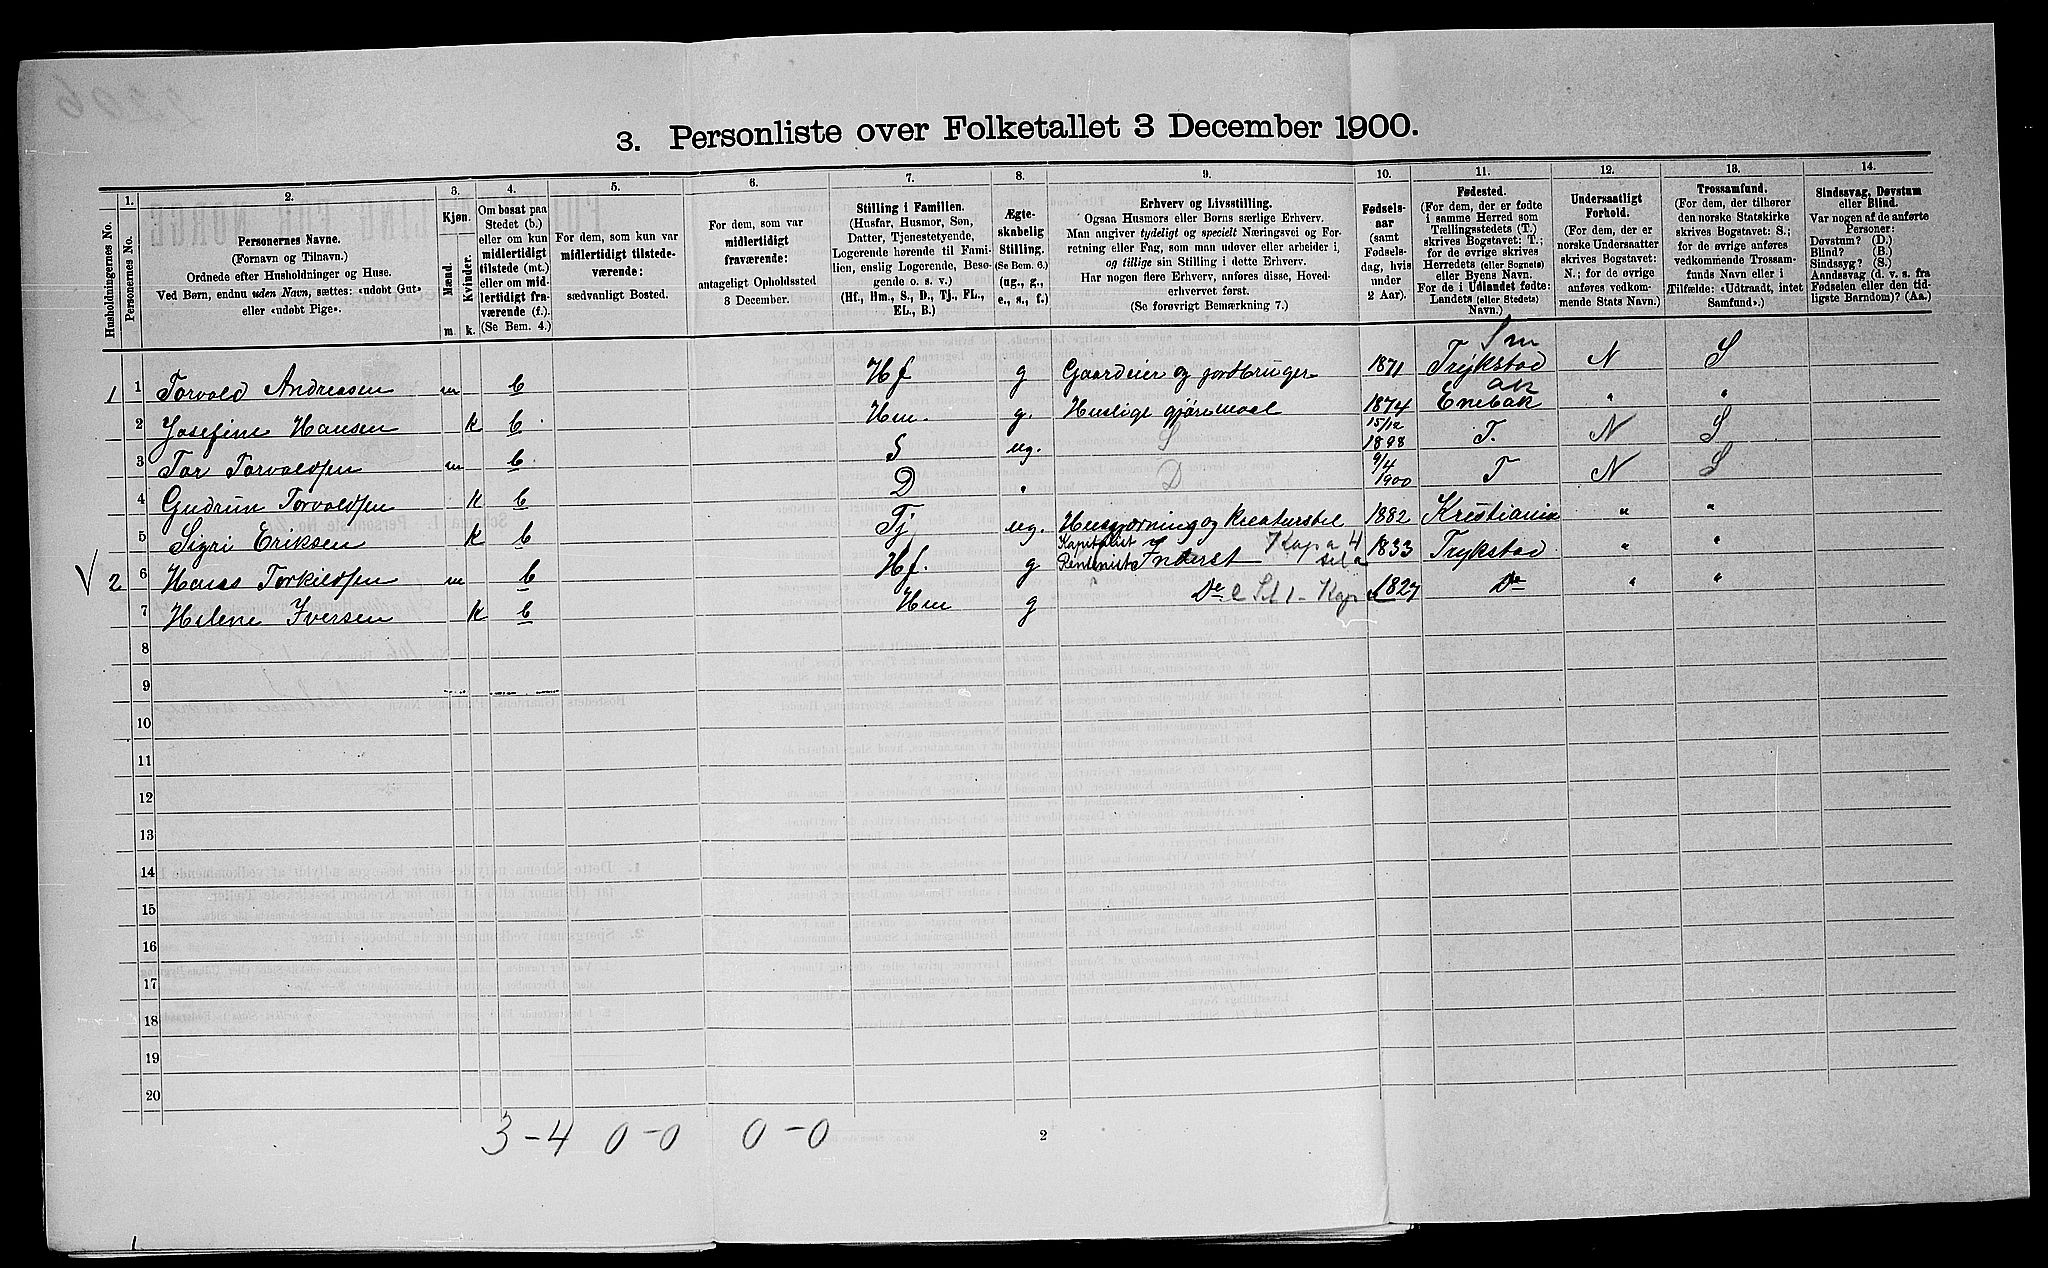 3. Personliste over Folketallet 3 December 1900.
1. 2. 3. 4. 5. 6. 7. 8. 9. 10. 11. 12. 13. 14.
Husholdningernes No.
Personernes No.
Personernes Navne.
(Fornavn og Tilnavn.)
Ordnede efter Husholdninger og Huse.
Ved Børn, endnu uden Navn, sættes: «udøbt Gut»
eller «udøbt Pige».
Kjøn.
Mænd.
Kvinder.
m. k.
Om bosat paa
Stedet (b.)
eller om kun
midlertidigt
tilstede (mt.)
eller om mid-
lertidigt fra-
værende (f.).
(Se Bem. 4.)
For dem, som kun var
midlertidigt tilstede-
værende:
sædvanligt Bosted.
For dem, som var
midlertidigt
fraværende:
antageligt Opholdssted
3 December.
Stilling i Familien.
(Husfar, Husmor, Søn,
Datter, Tjenestetyende,
Logerende hørende til Fami-
lien, enslig Logerende, Besø-
gende o. s. v.)
(Hf., Hm., S., D., Tj., FL.,
EL., B.)
Ægte-
skabelig
Stilling.
(Se Bem. 6.)
(ug., g.,
e., s., f.)
Erhverv og Livsstilling.
Ogsaa Husmors eller Børns særlige Erhverv.
Man angiver tydeligt og specielt Næringsvei og For-
retning eller Fag, som man udøver eller arbeider i,
og tillige sin Stilling i dette Erhverv.
Har nogen flere Erhverv, anføres disse, Hoved-
erhvervet først.
(Se forøvrigt Bemærkning 7.)
Fødsels-
aar
(samt
Fødsels-
dag, hvis
under
2 Aar).
Fødested.
(For dem, der er fødte
i samme Herred som
Tællingsstedets (T.)
skrives Bogstavet: T.;
for de øvrige skrives
Herredets (eller Sognets)
eller Byens Navn.
For de i Udlandet fødte:
Landets (eller Stedets)
Navn.)
Undersaatligt
Forhold.
(For dem, der er
norske Undersaatter
skrives Bogstavet:
N.; for de øvrige
anføres vedkom-
mende Stats Navn.)
Trossamfund.
(For dem, der tilhører
den norske Statskirke
skrives Bogstavet: S.;
for de øvrige anføres
vedkommende Trossam-
funds Navn eller i
Tilfælde: «Udtraadt, intet
Samfund».)
Sindssvag, Døvstum
eller Blind.
Var nogen af de anførte
Personer:
Døvstum? (D.)
Blind? (B.)
Sindssyg? (S.)
Aandssvag (d. v. s. fra
Fødselen eller den tid-
ligste Barndom)? (Aa.)
Sm
1 1 Torvald Andreasen m b Hf g Gaardeier og jordbruger 1871 Trykstad N S
ak
2 Josefine Hansen k b Hm. g. Huslige gjøremaal 1874 Enebak " "
3 Tor Torvaldsen m b S ug. S 15/12 1898 T. N S
4 Gudrun Torvaldsen k b D " D 9/4 1900 T N S
5 Sigri Eriksen k b Tj ug. Husgjerning og kreaturstel 1882 Kristiania " "
Kapitalist
2 6 Hans Torkildsen m b Hf. g Rentenist 1833 Trykstad " "
7 Helene Iversen k b Hm g Do 1827 Do " "
8
9
10
11
12
13
14
15
16
17
18
19
20
3-4 0-0 0-0
2